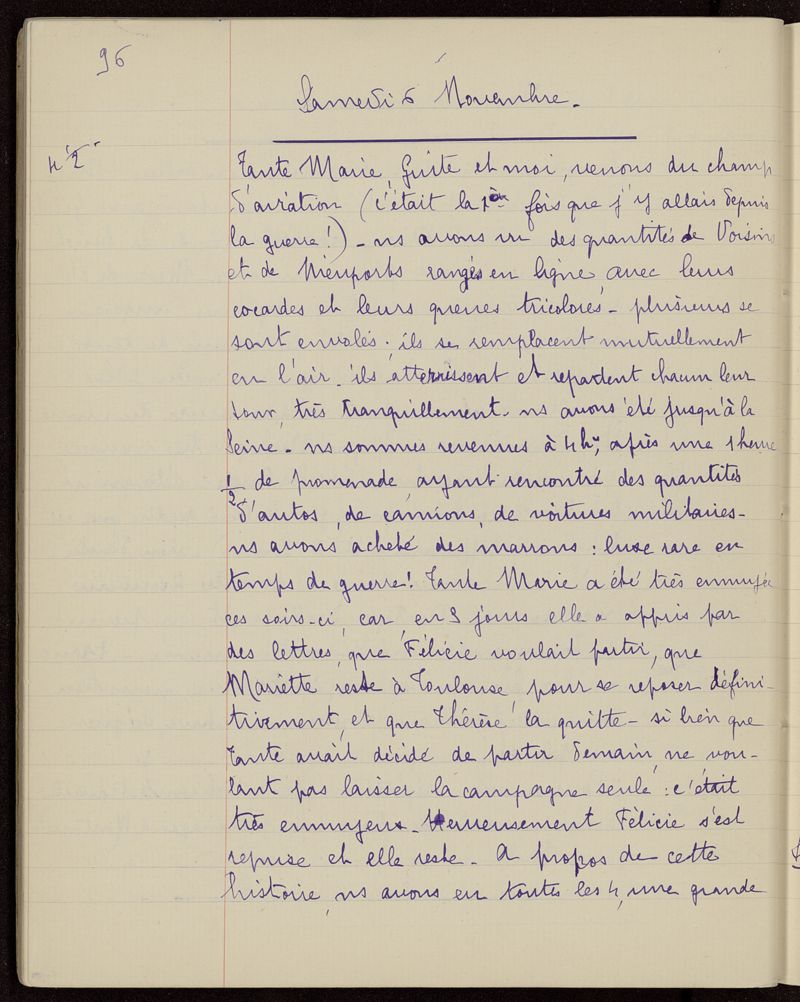 96
Samedi 6 Novembre.
4h 1/2
Tante Marie, Guite et moi, venons du champ
d'aviation (c'était la 1ère fois que j'y allais depuis
la guerre!) - ns avons vu des quantités de Voisins
et de Nieuports rangés en ligne, avec leurs
cocardes et leurs queues tricolores - plusieurs se
sont envolés; ils se remplacent mutuellement
en l'air. ils atterrissent et repartent chacun leur
tour, très tranquillement. ns avons été jusqu'à la
Seine - ns sommes revenues à 4h, après une 1 heure
1/2 de promenade, ayant rencontré des quantités
d'autos, de camions, de voitures militaires -
ns avons acheté des marrons : luxe rare en
temps de guerre! Tante Marie a été très ennuyée
ces soirs-ci, car, en 3 jours elle a appris par
des lettres, que Félicie voulait partir, que
Mariette reste à Toulouse pour se reposer défini-
tivement, et que Thérèse la quitte - si bien que
Tante avait décidé de partir demain, ne vou-
lant pas laisser la campagne seule : c'était
très ennuyeux - Heureusement Félicie s'est
reprise et elle reste - A propos de cette
histoire, ns avons eu toutes les 4, une grande